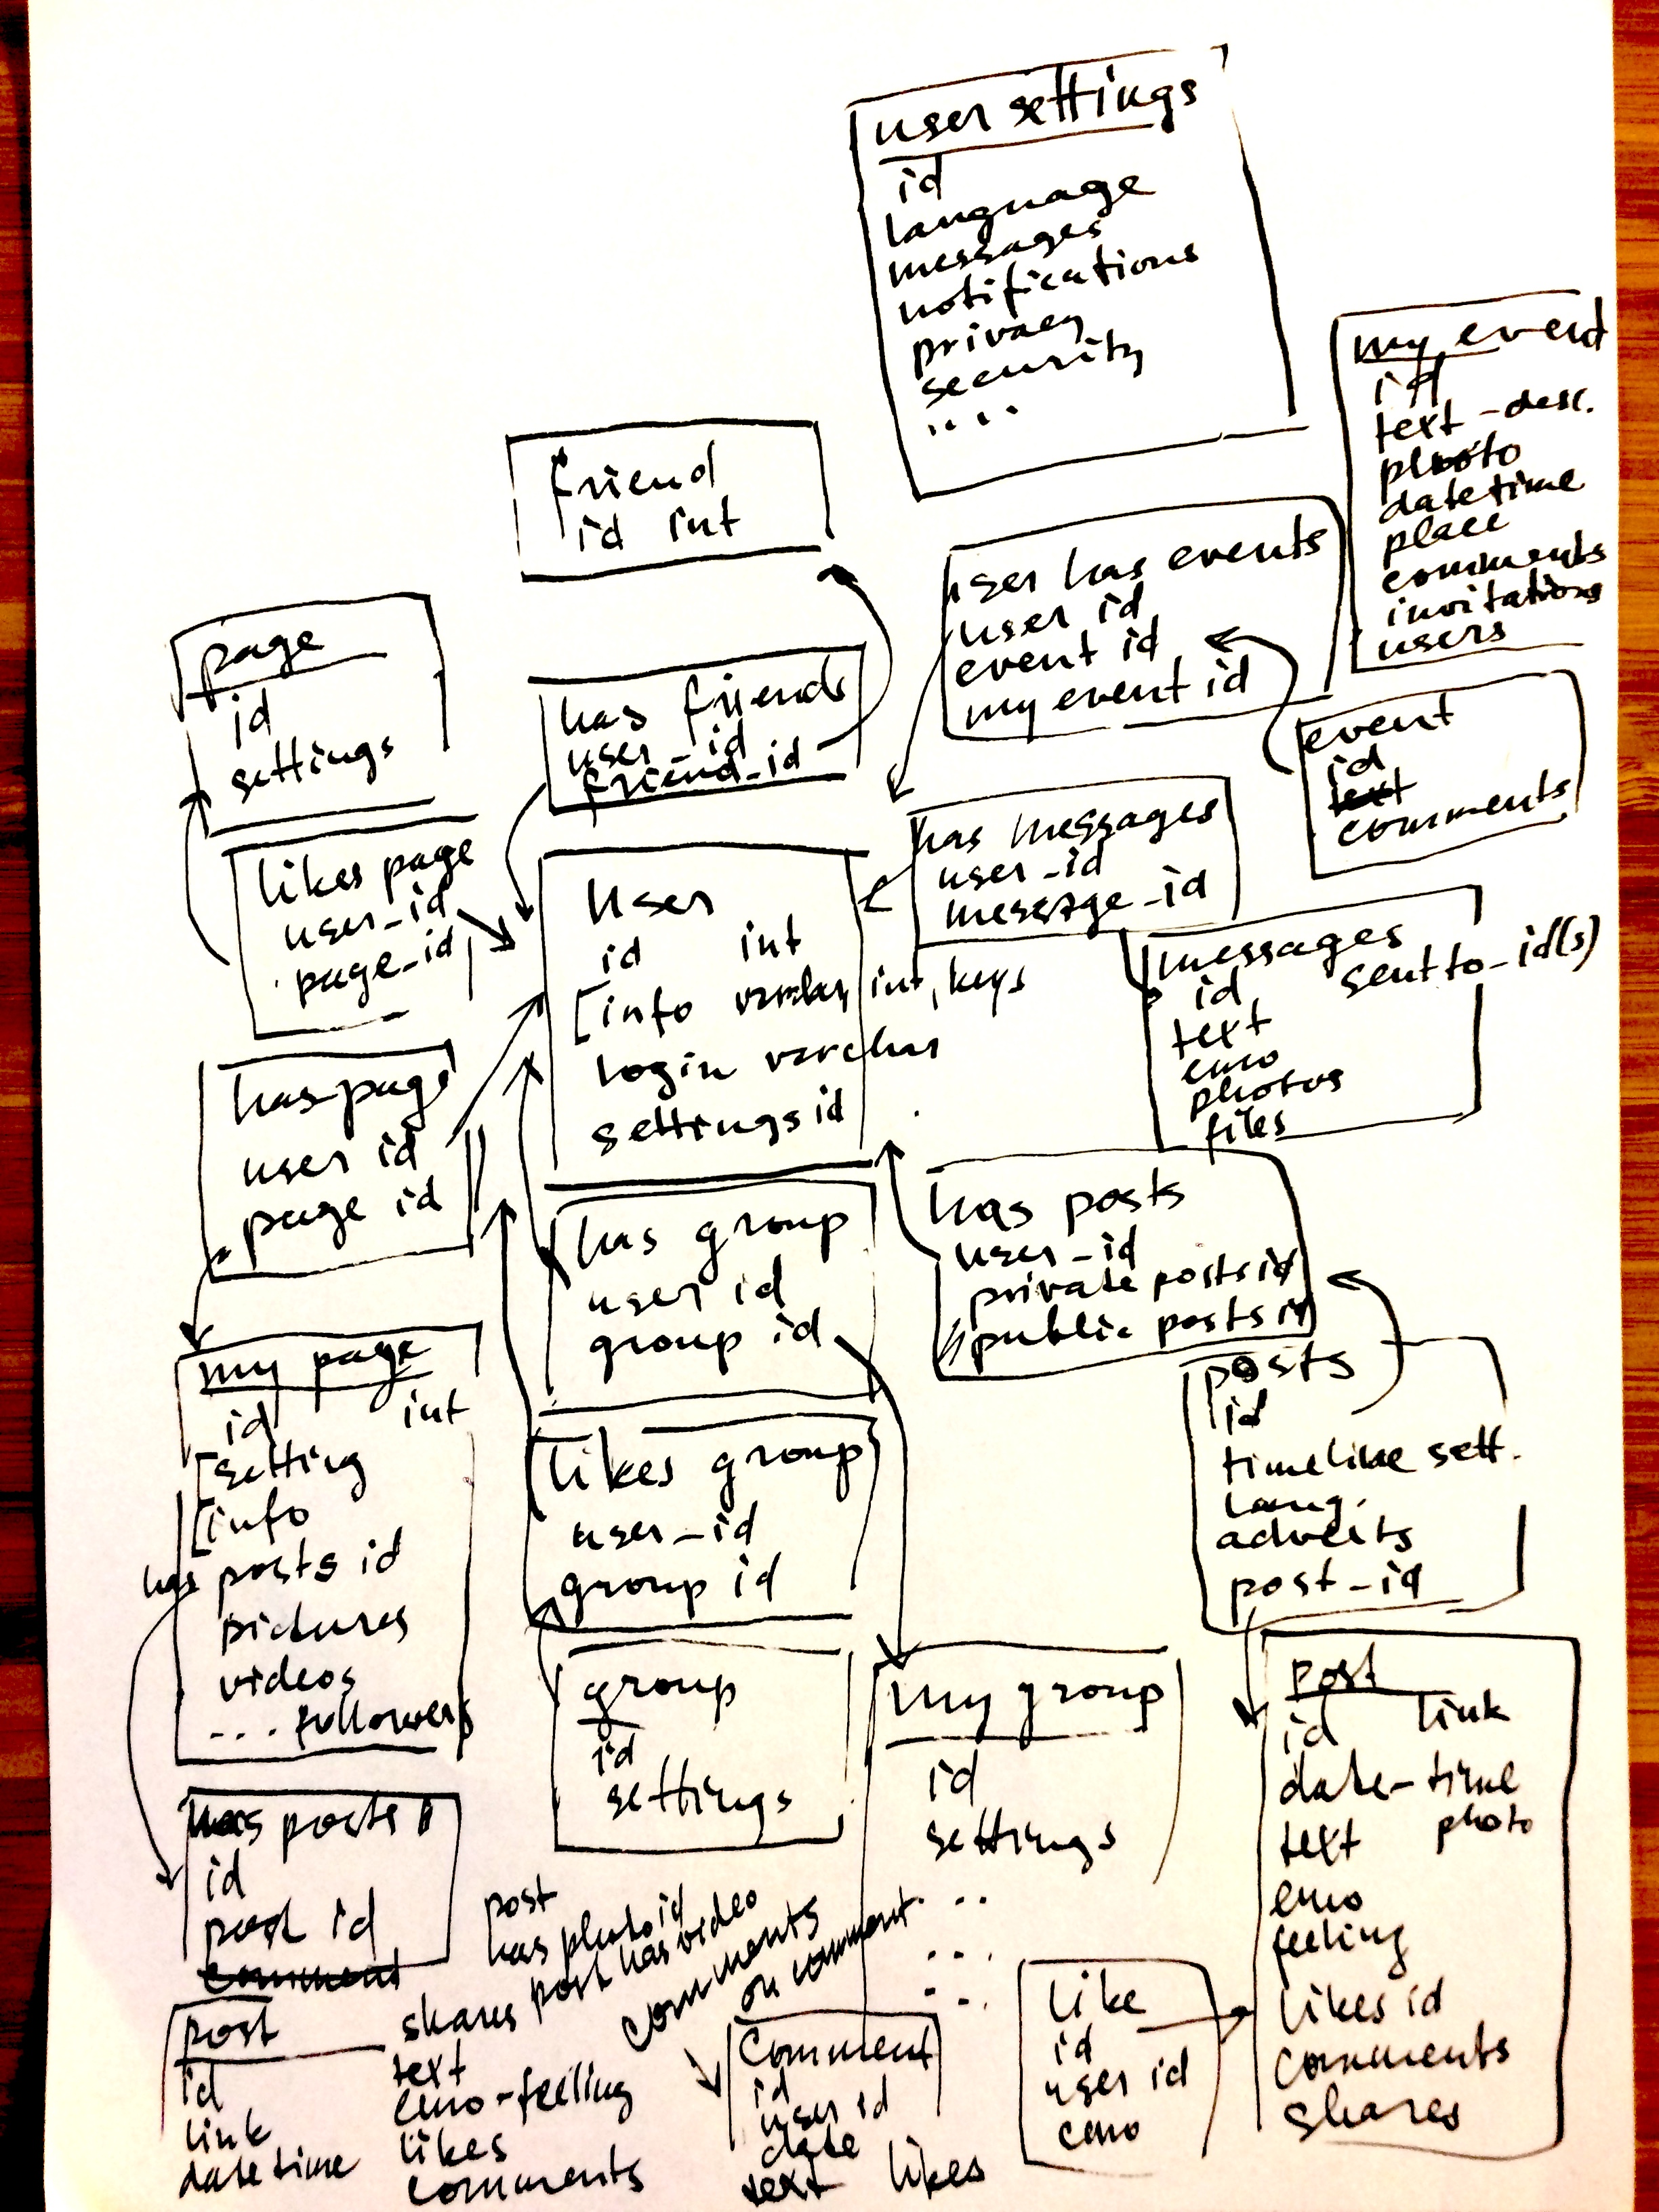 user settings
id
language
messages
notifications
privacy
security
....
my event
id
text - desc.
photo
datetime
place
comments
invitations
users
friend
id int
user has events
user id
event id
my event id
page
id
settings
has friends
user_id
friend_id
event
id
comments
likes page
user_id
page_id
has messages
user_id
message_id
user
id int
[info varchar, int, keys
login varchar
settings id
messages
id sent to_id(s)
text
emo
photos
files
has page
user id
page id
has group
user id
group id
has posts
user_id
private posts id
public posts id
my page
id int
[setting
[info
has posts id
pictures
videos
... followers
likes group
user_id
group id
posts
id
timeline sett.
lang.
adverts
post_id
group
id
settings
my group
id
settings
...
...
...
post
id link
date-time
text photo
emo
feeling
likes id
comments
shares
has posts
id
post id
comment
post
has photo id
post has video
comments
on comment
post
id
link
datetime
shares
text
emo-feeling
likes
comments
comment
id
user id
date
text likes
like
id
user id
emo